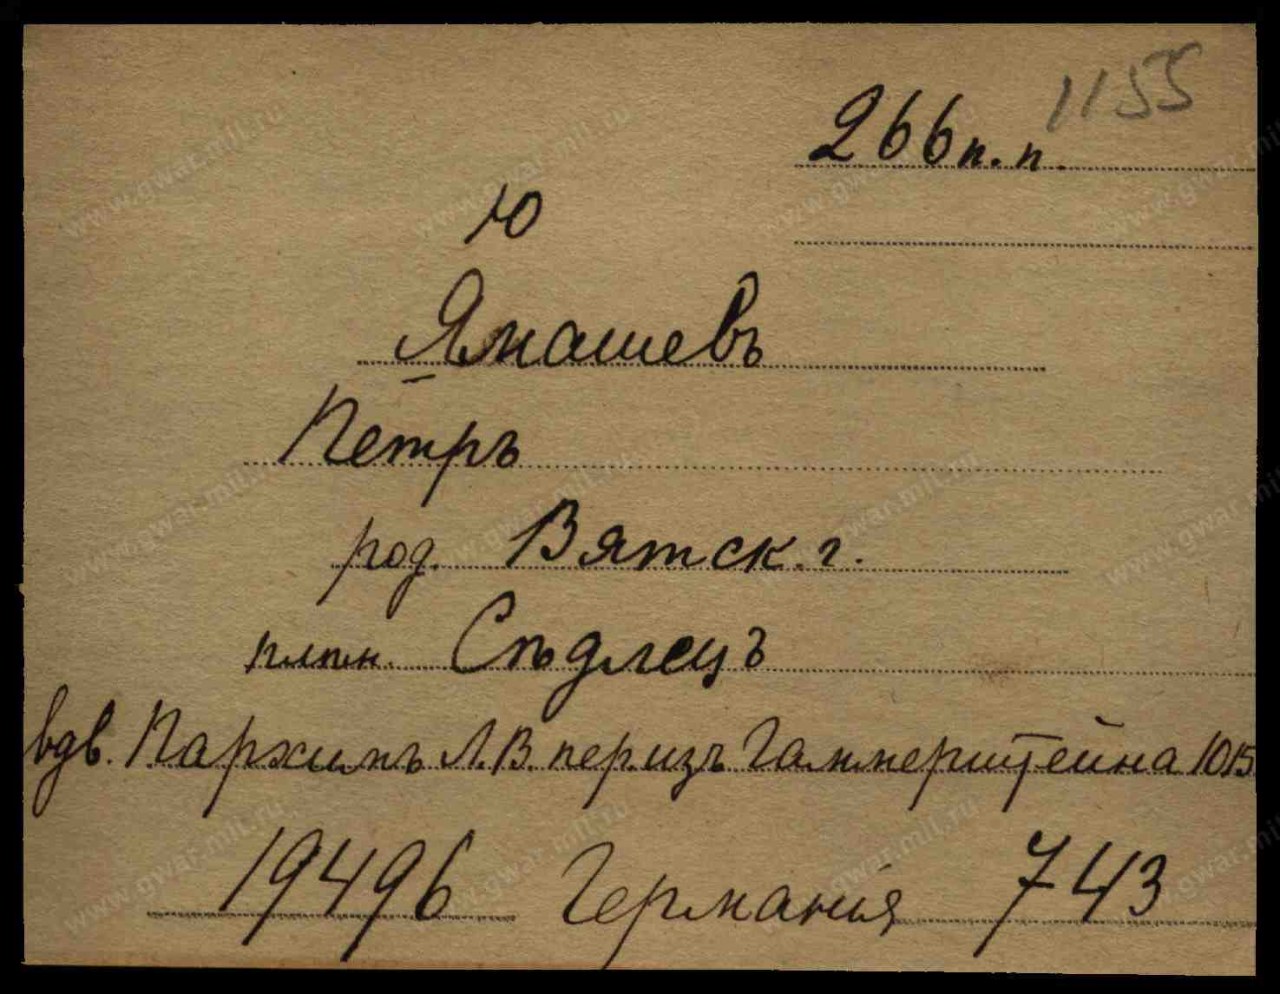 1155
266 п. п.
Ю
Ямашевъ
Петръ
род. Вятск. г.
плѣн. Сѣдлецъ
вдв. Пархимъ Л.В. пер. изъ Гаммерштейна 1015
19496 Германія 743